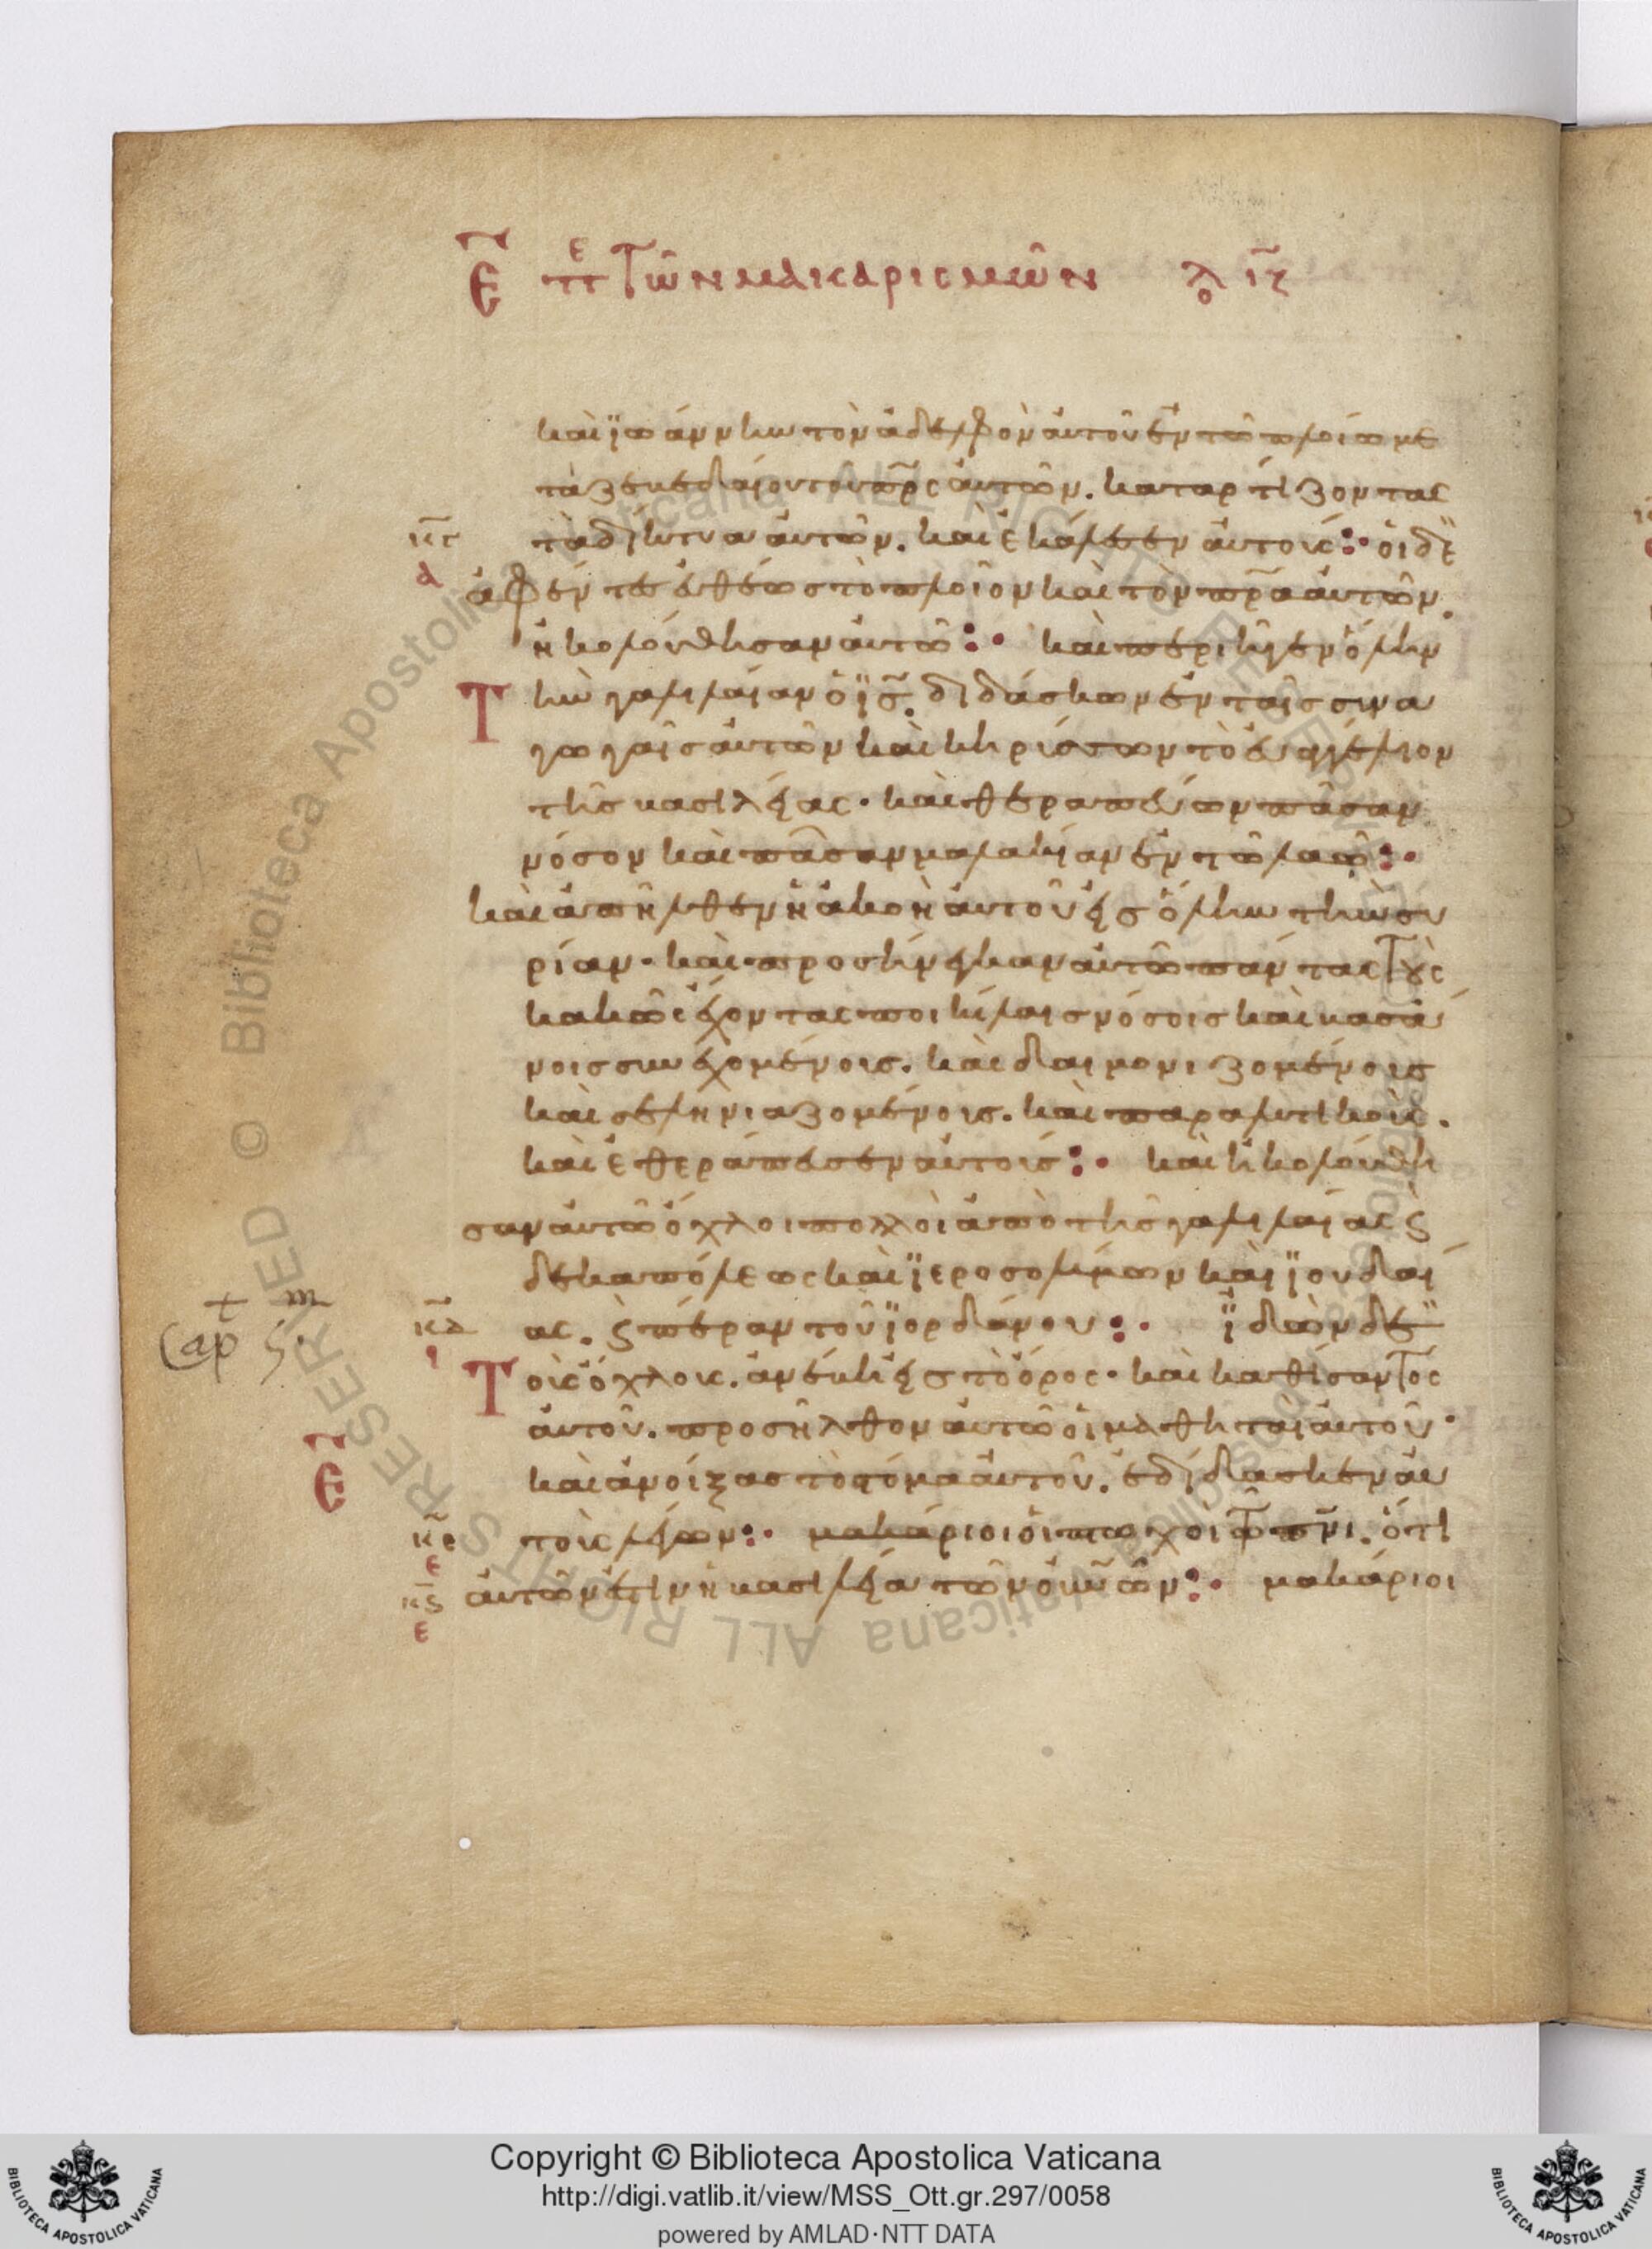 Ε̄ πε τῶν μακαρισμῶν λο ιζ
καὶ ϊωάννην τὸν ἀδελφὸν ἀυτοῦ ἐν τῶ πλοίω με
τὰ ζεβεδαίου τοῦ πρ̅ς ἀυτῶν. καταρτίζοντας
κγ τὰ δίκτυα ἀυτῶν. καὶ ἐκάλεσεν ἀυτούς: οἱ δὲ
ἀφέντες ἐυθέως τὸ πλοῖον καὶ τὸν πρ̅α ἀυτῶν.
ἠκολούθησαν ἀυτῶ: καὶ περιῆγεν ὅλην
Την γαλιλαίαν ὁ ϊς̅. διδάσκων ἐν ταῖς συνα
γωγαῖς ἀυτῶν καὶ κηρύσσων τὸ ἐυαγγέλιον
τῆς βασιλείας. καὶ θεραπεύων πᾶσαν
νόσον καὶ πᾶσαν μαλακίαν ἐν τῶ λαῶ:
καὶ ἀπῆλθεν ἡ ἀκοὴ ἀυτοῦ εἰς ὅλην τὴν συ
ρίαν. καὶ προσήνεγκαν ἀυτῶ πάντας τοὺς
κακῶς ἔχοντας ποικίλαις νόσοις καὶ βασά
νοις συνεχομένοις. καὶ δαιμονιζομένοις
καὶ σεληνιαζομένοις. καὶ παραλυτικούς.
καὶ ἐθεράπευσεν ἀυτούς: καὶ ἠκολούθη
σαν ἀυτῶ ὄχλοι πολλοὶ ἀπὸ τῆς γαλιλαίας ϛ
δεκαπόλεως καὶ ϊεροσολύμων καὶ ϊουδαί
κδ ας. ϛ πέραν τοῦ ϊορδάνου: ϊδὼν δὲ
Cap t 5 m
Τοὺς ὄχλους. ἀνέβη εἰς τὸ ὄρος. καὶ καθίσαντος
ἀυτοῦ. προσῆλθον ἀυτῶ οἱ μαθηταὶ ἀυτοῦ.
Ε̄ καὶ ἀνοίξας τὸ στόμα ἀυτοῦ. ἐδίδασκεν ἀυ
κε τοὺς λέγων: μακάριοι οἱ πτωχοὶ τῶ πν̅ι. ὅτι
κϛ ἀυτῶν ἐστιν ἡ βασιλεία τῶν οὐν̅ῶν: μακάριοι
Copyright © Biblioteca Apostolica Vaticana
http://digi.vatlib.it/view/MSS_Ott.gr.297/0058
powered by AMLAD·NTT DATA
BIBLIOTECA APOSTOLICA VATICANA
BIBLIOTECA APOSTOLICA VATICANA